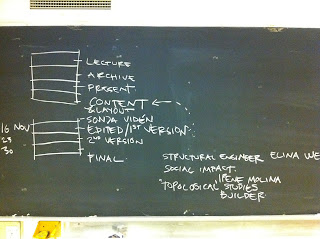 LECTURE
ARCHIVE
PRESENT
CONTENT
& LAYOUT
SONDA VIDÉN
16 NOV EDITED / 1ST VERSION
23 2ND VERSION
30
FINAL
STRUCTURAL ENGINEER ELINA WE
SOCIAL IMPACT.
IRENE MOLINA
TOPOLOGICAL STUDIES
BUILDER